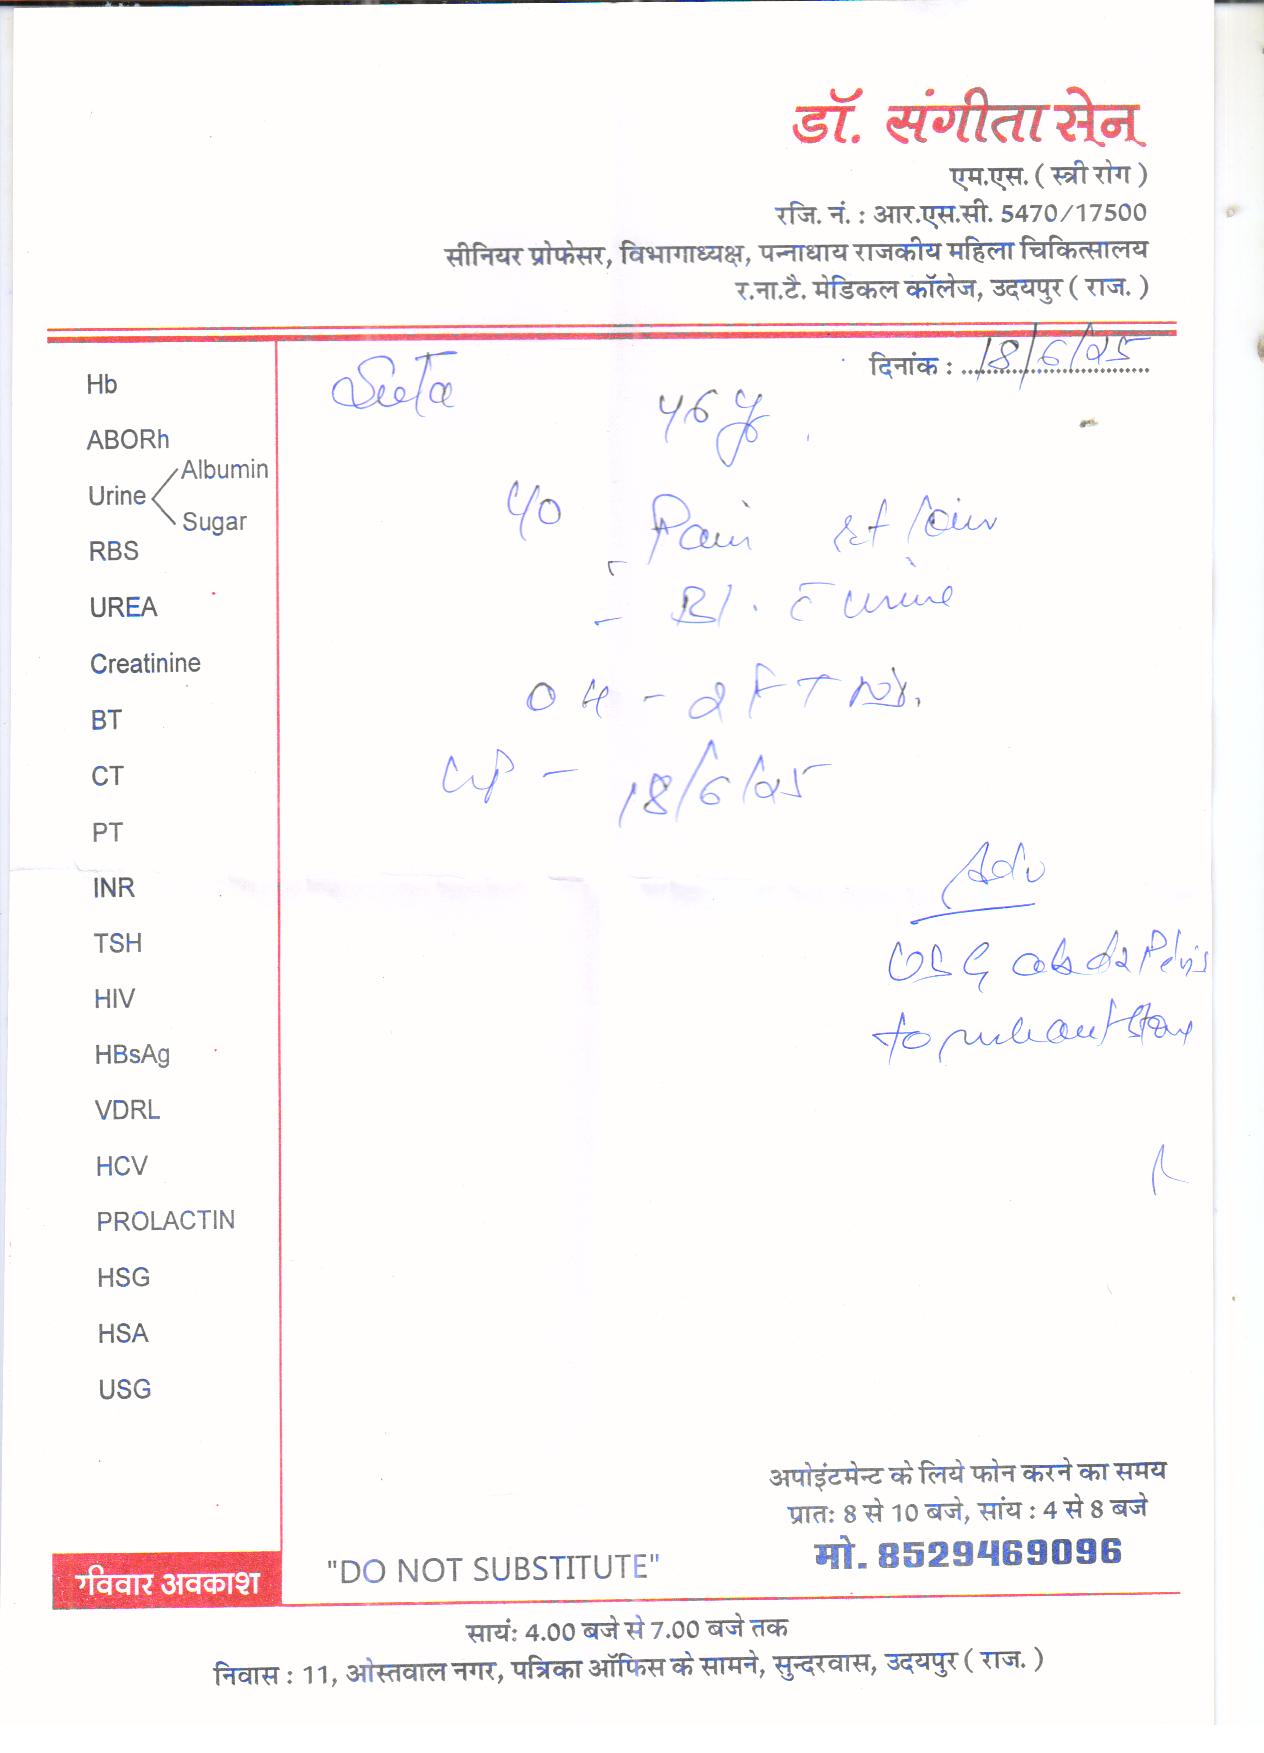 डॉ. संगीता सेन
एम.एस. ( स्त्री रोग )
रजि. नं. : आर.एस.सी. 5470/17500
सीनियर प्रोफेसर, विभागाध्यक्ष, पन्नाधाय राजकीय महिला चिकित्सालय
र.ना.टै. मेडिकल कॉलेज, उदयपुर ( राज. )
दिनांक : 18/6/25
46 y
c/o Pain
- Bl. c̄ urine
OH - 2 FTND.
- 18/6/25
Adv
USG abd & Pelvis
to
Hb
ABORh
Urine
Albumin
Sugar
RBS
UREA
Creatinine
BT
CT
PT
INR
TSH
HIV
HBsAg
VDRL
HCV
PROLACTIN
HSG
HSA
USG
अपोइंटमेन्ट के लिये फोन करने का समय
प्रातः 8 से 10 बजे, सांय : 4 से 8 बजे
मो. 8529469096
रविवार अवकाश
"DO NOT SUBSTITUTE"
सायंः 4.00 बजे से 7.00 बजे तक
निवास : 11, ओस्तवाल नगर, पत्रिका ऑफिस के सामने, सुन्दरवास, उदयपुर ( राज. )